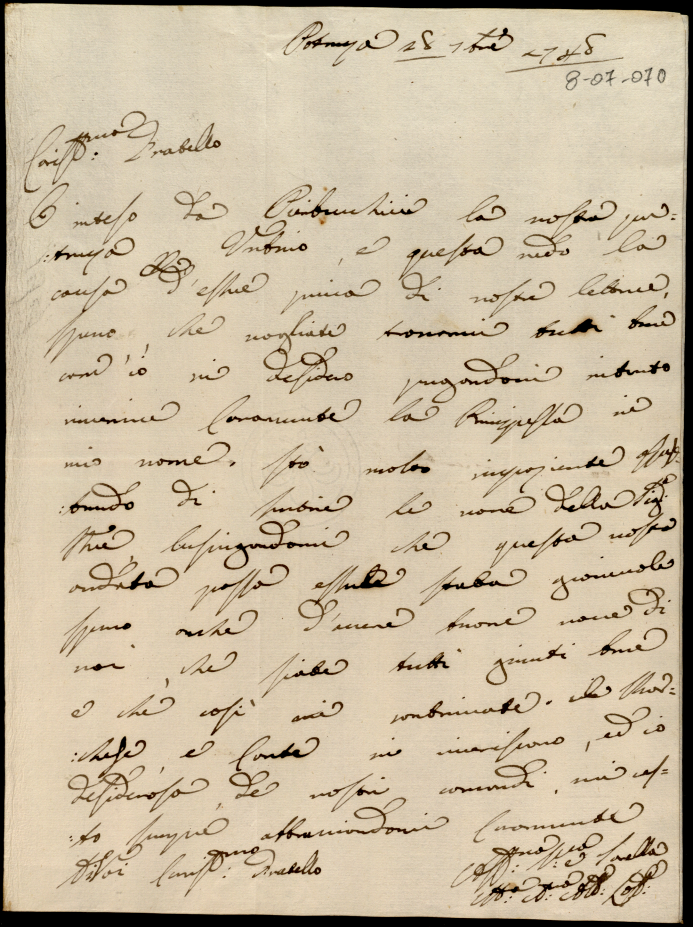 28 7bre 1748
8-07-070
Cariss:mo Fratello
O inteso da la vostra par=
:tenza Urbino, e questa vedo la
causa d'essere priva di vostre lettere,
spero, che vogliate trovarvi tutti bene
com'io vi desidero pregandovi intanto
riverirmi Caramente la Principessa in
mio nome. Stò molto impaziente aspet
:tando di sentire le nove della Sig:
lusingandomi che questa vostra
andata possa esserle stata giovevole
spero anche d'avere buone nove di
voi, che siate tutti giunti bene
e che così mi continuate. Il Mar=
:chese, e Conte vi riveriscono, ed io
desiderosa de vostri comandi, mi res=
:to sempre abbracciandovi Caramente
Di Voi Cariss:mo Fratello
Sorella